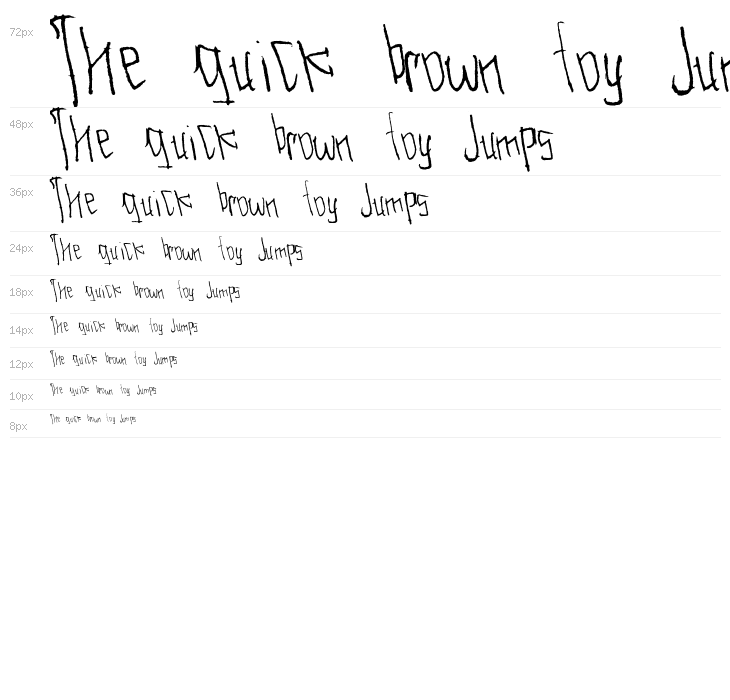 72px The quick brown foy Ju
48px The quick brown foy Jumps
36px The quick brown foy Jumps
24px The quick brown foy Jumps
18px The quick brown foy Jumps
14px The quick brown foy Jumps
12px The quick brown foy Jumps
10px The quick brown foy Jumps
8px The quick brown foy Jumps